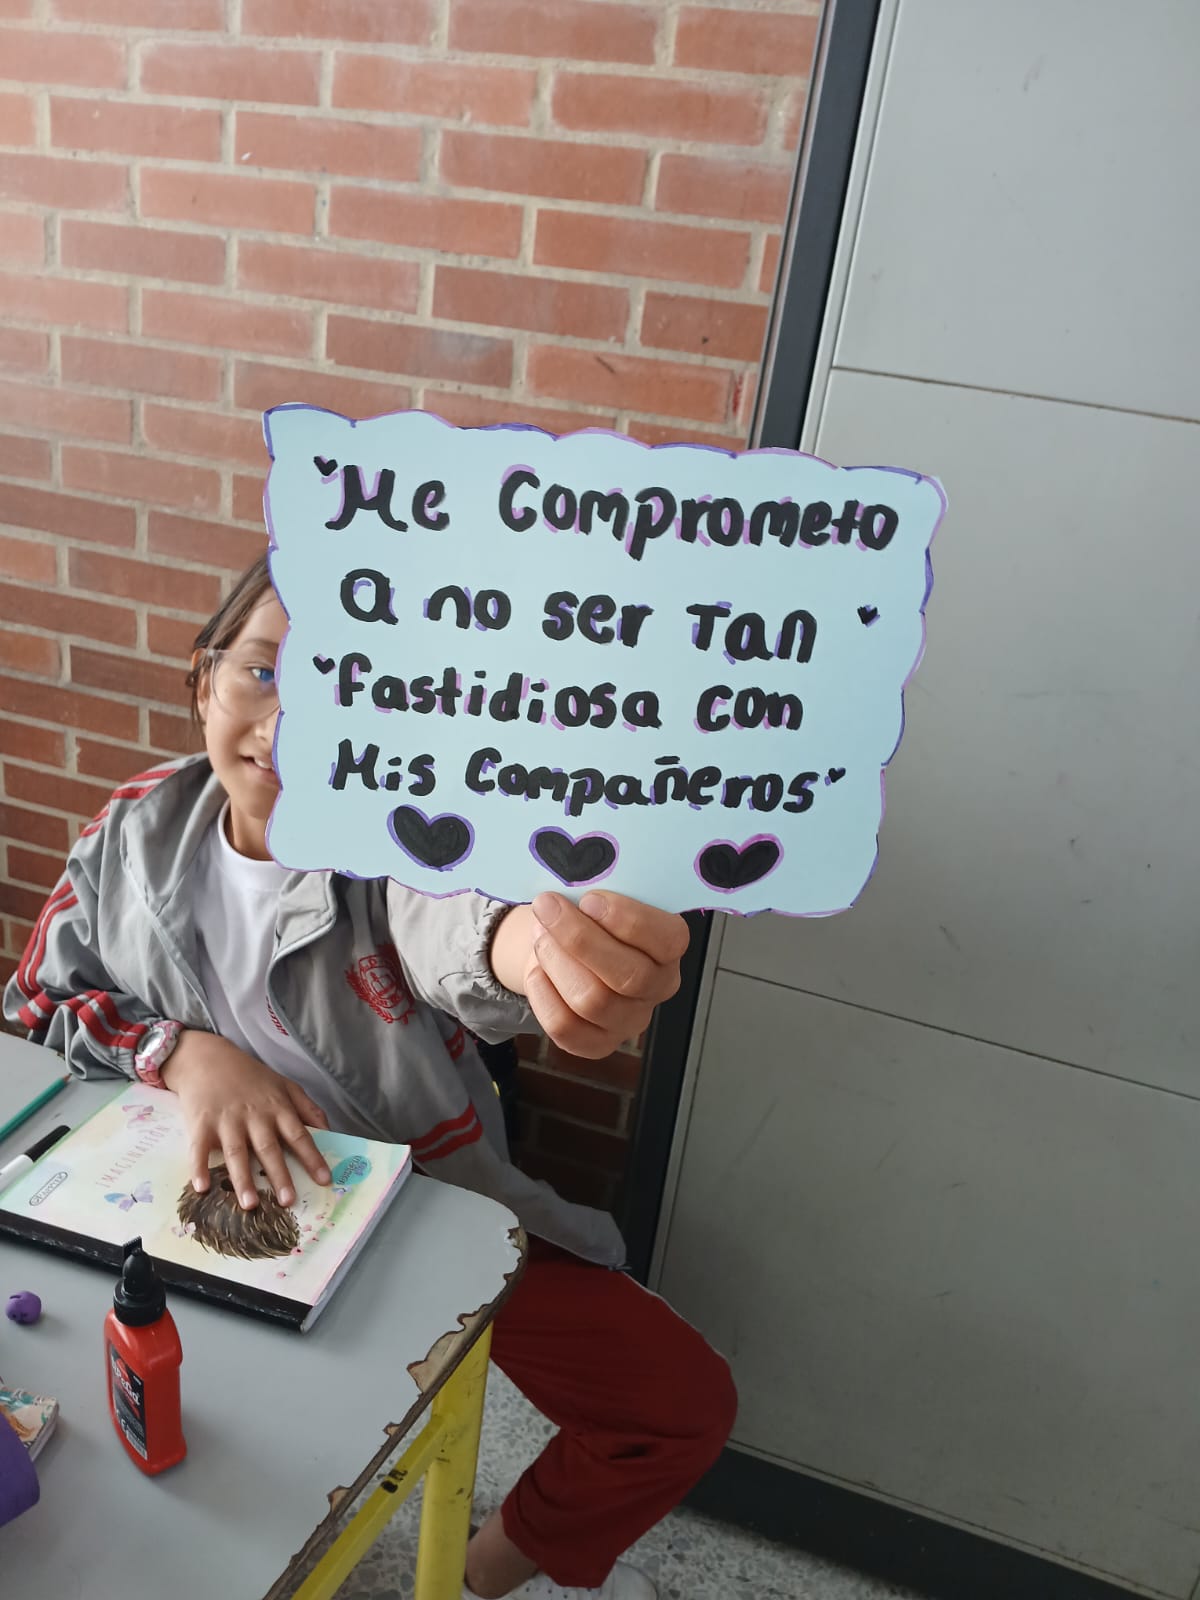 Me Comprometo
a no ser Tan
fastidiosa con
Mis Compañeros
IMAGINATION